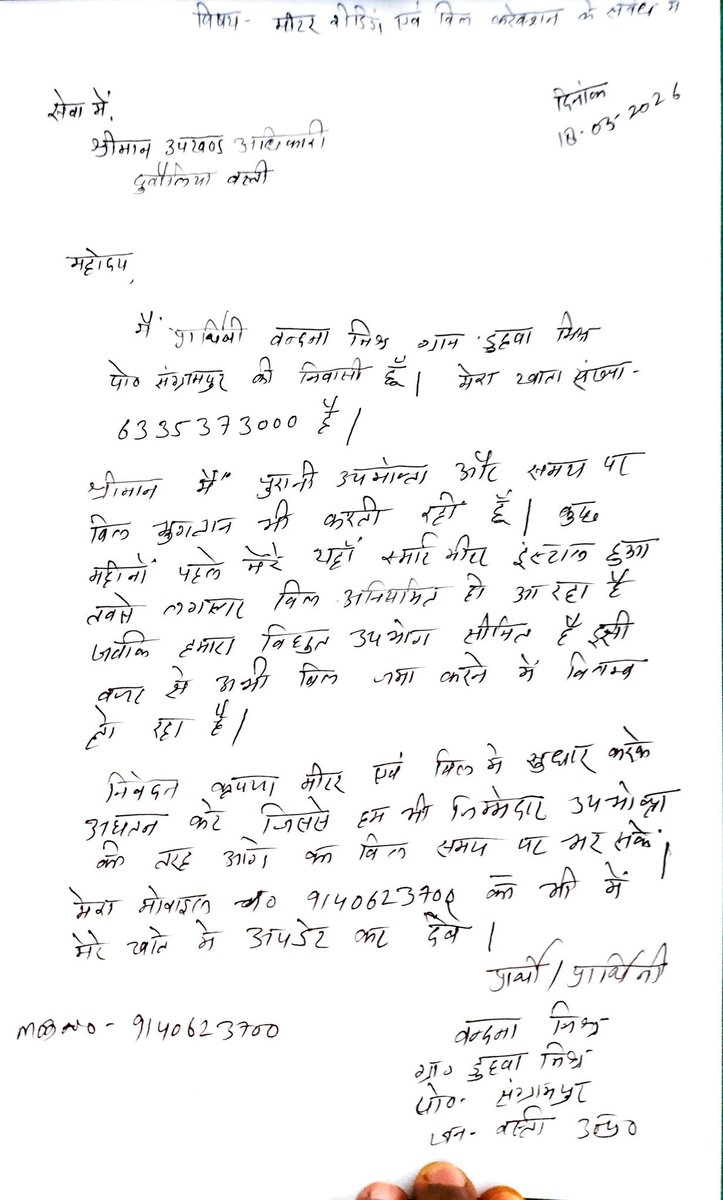 विषय - मीटर रीडिंग एवं बिल करेक्शन के संबंध में
दिनांक
18-05-2026
सेवा में,
श्रीमान उपखण्ड अधिकारी
दुबौलिया बस्ती
महोदय,
मैं प्रार्थिनी वन्दना मिश्र ग्राम डुहवा मिश्र
पो० संग्रामपुर की निवासी हूँ। मेरा खाता संख्या-
6335373000 है।
श्रीमान मैं पुरानी उपभोक्ता और समय पर
बिल भुगतान भी करती रही हूँ। कुछ
महीनों पहले मेरे यहाँ स्मार्ट मीटर इंस्टाल हुआ
तबसे लगातार बिल अनियमित हो आ रहा है
जबकि हमारा विद्युत उपभोग सीमित है इसी
वजह से अभी बिल जमा करने में विलम्ब
हो रहा है।
निवेदन कृपया मीटर एवं बिल मे सुधार करके
अद्यतन करे जिससे हम भी जिम्मेदार उपभोक्ता
की तरह आगे का बिल समय पर भर सकें।
मेरा मोबाइल न० 9140623700 को भी में
मेरे खाते मे अपडेट कर देवे।
प्रार्थी / प्रार्थिनी
MOB NO - 9140623700
वन्दना मिश्र
ग्रा० डुहवा मिश्र
पो०- संग्रामपुर
जन- बस्ती उ०प्र०